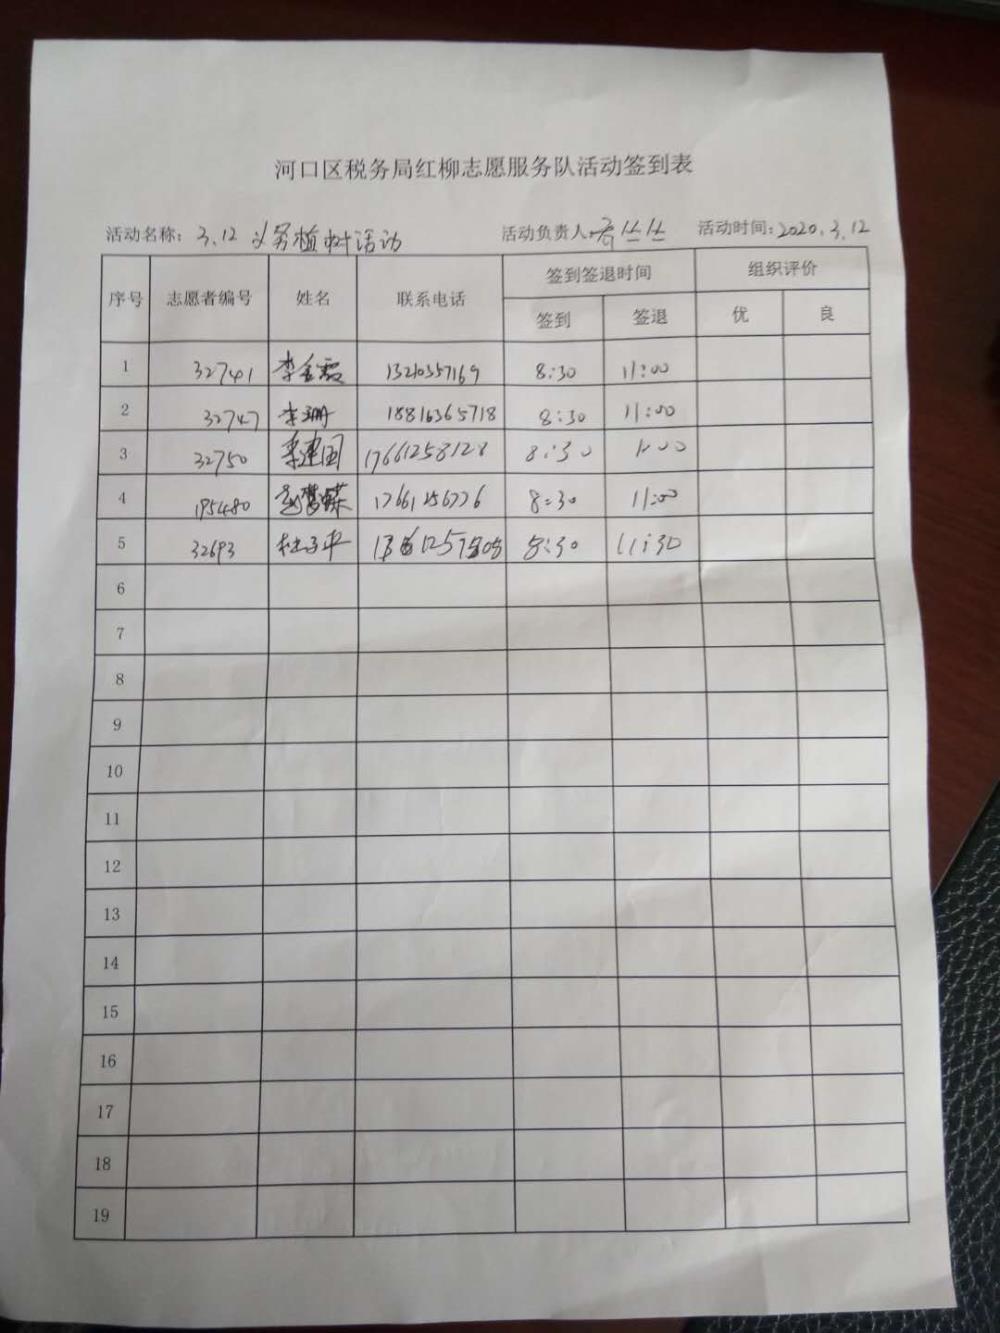 河口区税务局红柳志愿服务队活动签到表
活动名称：3.12 义务植树活动 活动负责人： 活动时间：2020.3.12
序号 志愿者编号 姓名 联系电话 签到签退时间 组织评价
签到 签退 优 良
1 32741 李金霞 13210357169 8:30 11:00
2 32747 李珊 18816365718 8:30 11:00
3 32750 李建国 17661258128 8:30
4 195480 赵梦蝶 17661256776 8:30 11:00
5 32693 杜子平 8:30 11:30
6
7
8
9
10
11
12
13
14
15
16
17
18
19